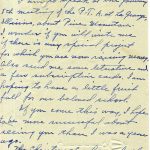 5th meeting of the P.T.A. at La Grange
Illinois, about Pine Mountain.
I wonder if you will write me
if there is any special project
for which you are now raising money.
Also send me some literature and
a few subscription cards. I am
hoping to have a little fruit
fall for our beloved school.
If you come this way I hope
to be more successful about
seeing you than I was a year
ago.